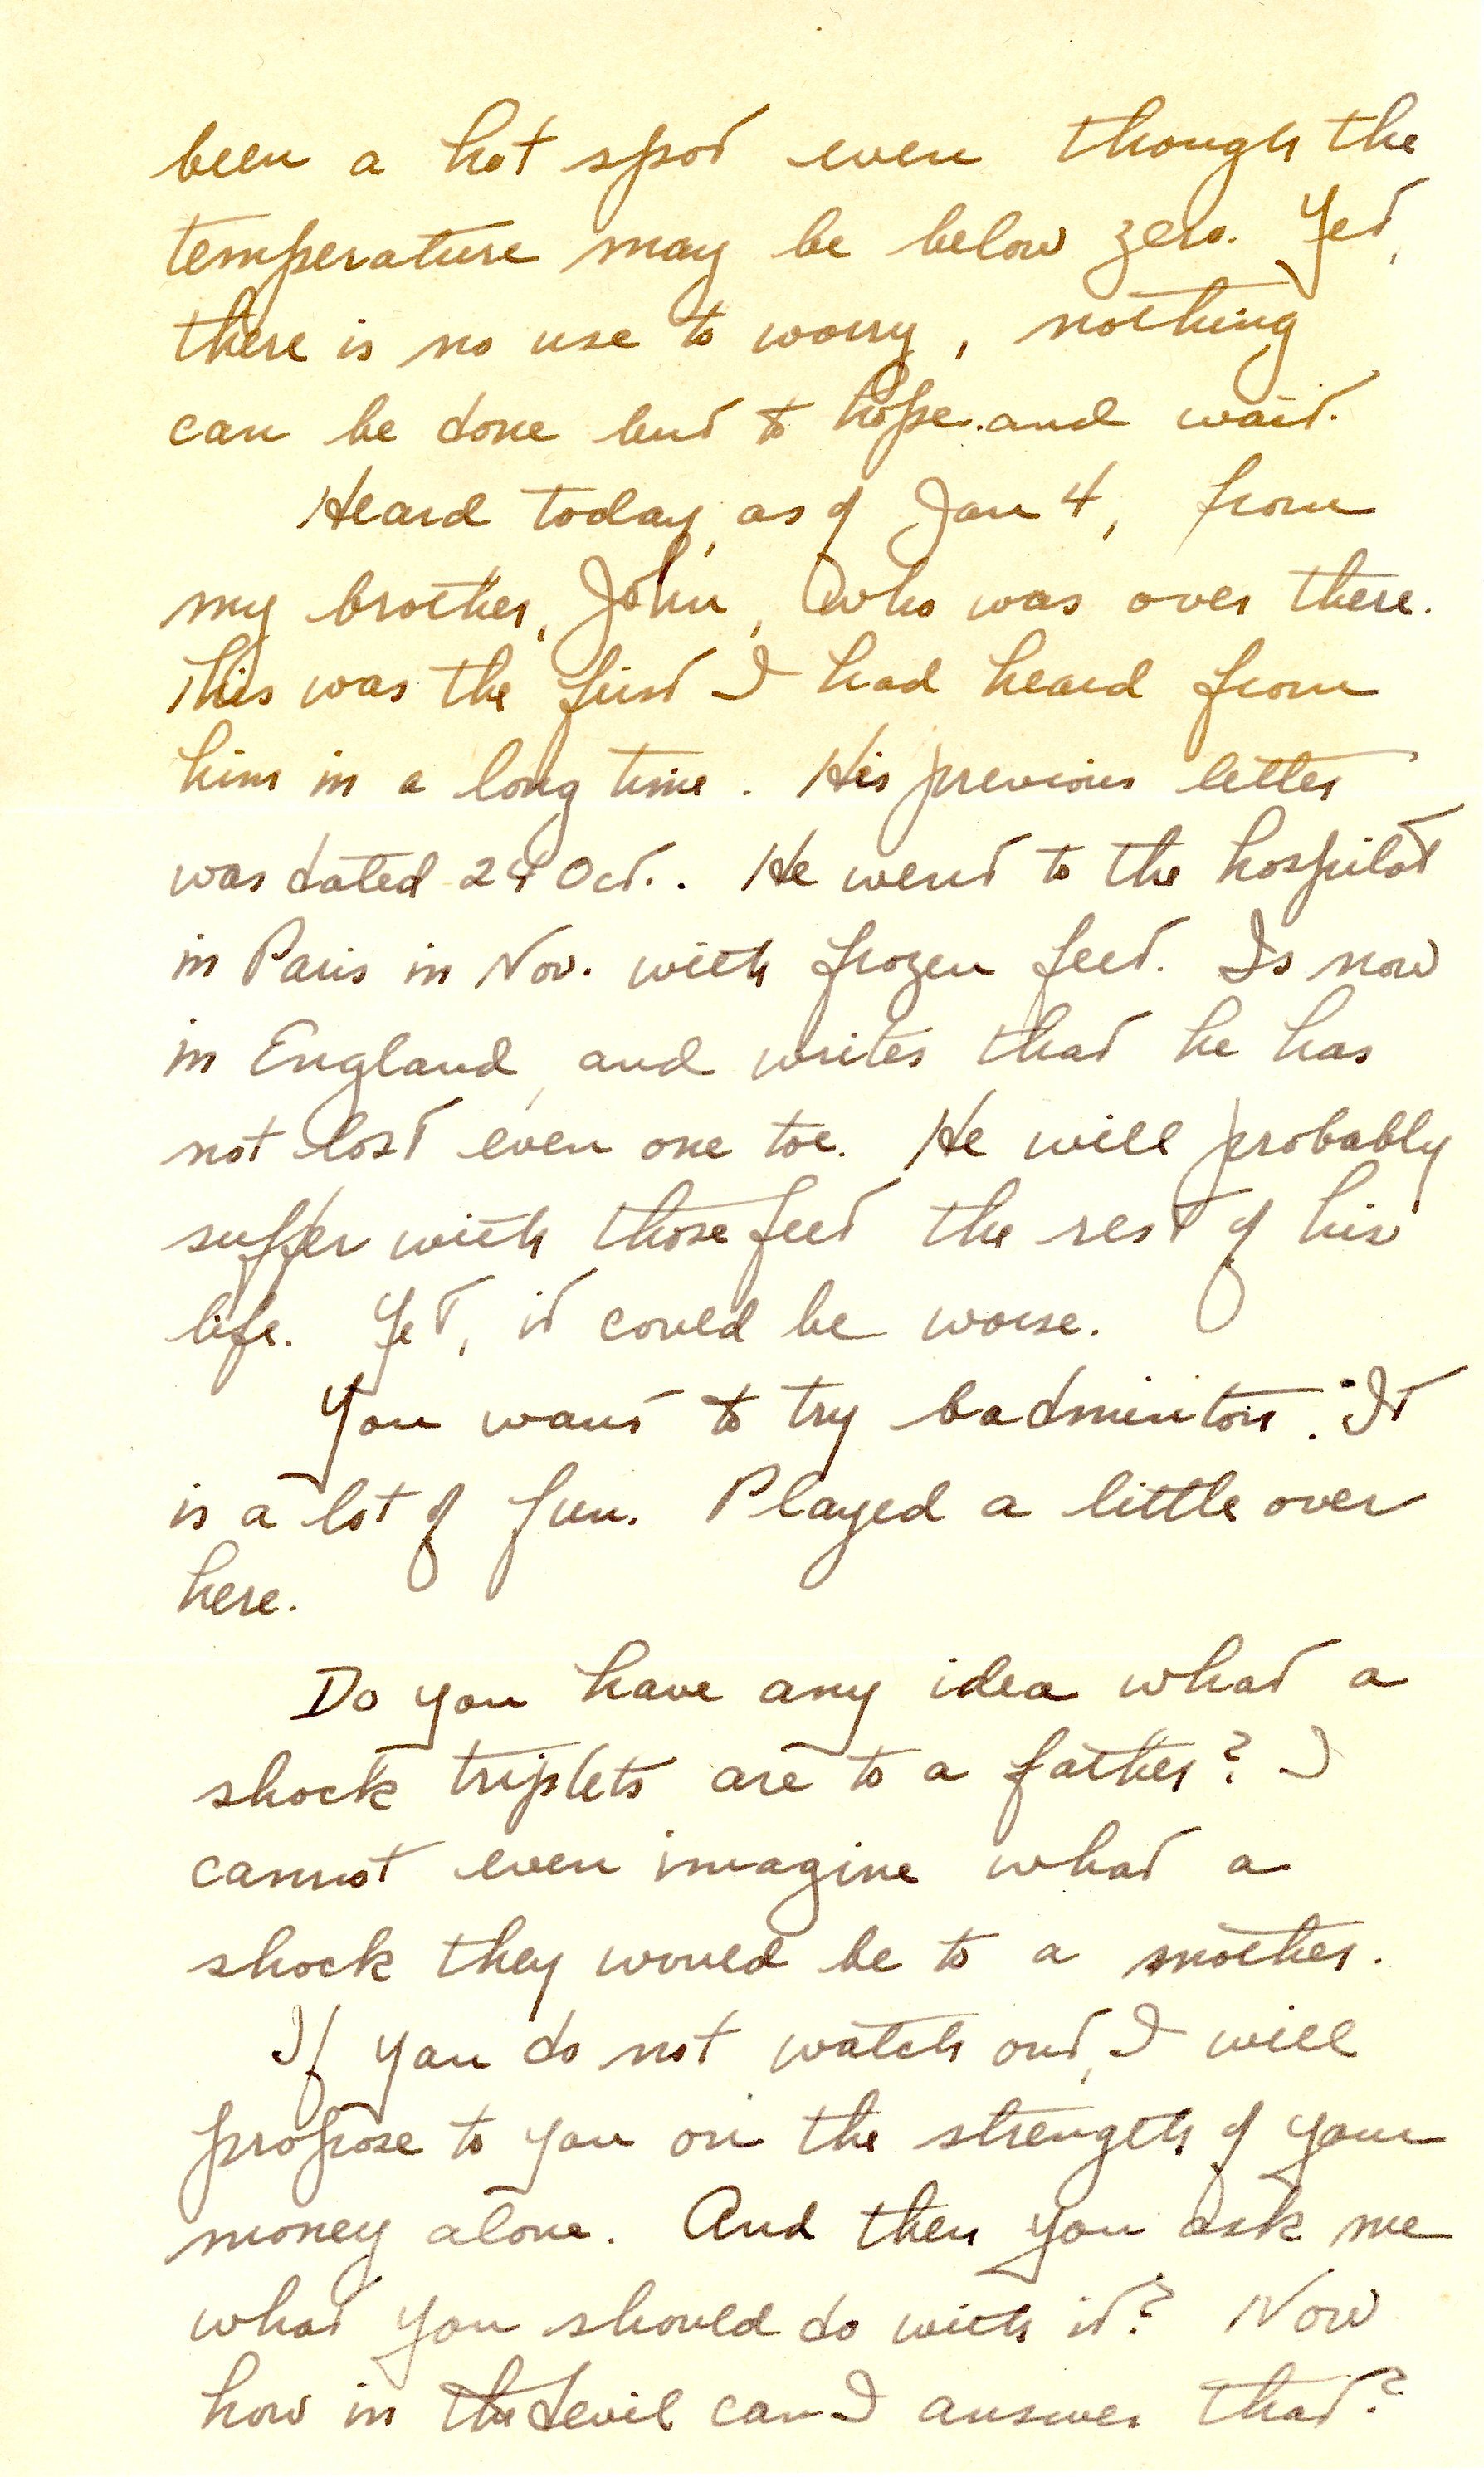 been a hot spot even though the
temperature may be below zero. Yet,
there is no use to worry, nothing
can be done but to hope and wait.
Heard today, as of Jan 4, from
my brother, John, who was over there.
This was the first I had heard from
him in a long time. His previous letter
was dated 24 Oct.. He went to the hospital
in Paris in Nov. with frozen feet. Is now
in England, and writes that he has
not lost even one toe. He will probably
suffer with those feet the rest of his
life. Yet, it could be worse.
You want to try badminton. It
is a lot of fun. Played a little over
here.
Do you have any idea what a
shock triplets are to a father? I
cannot even imagine what a
shock they would be to a mother.
If you do not watch out, I will
propose to you on the strength of your
money alone. And then you ask me
what you should do with it? Now
how in the devil can I answer that?